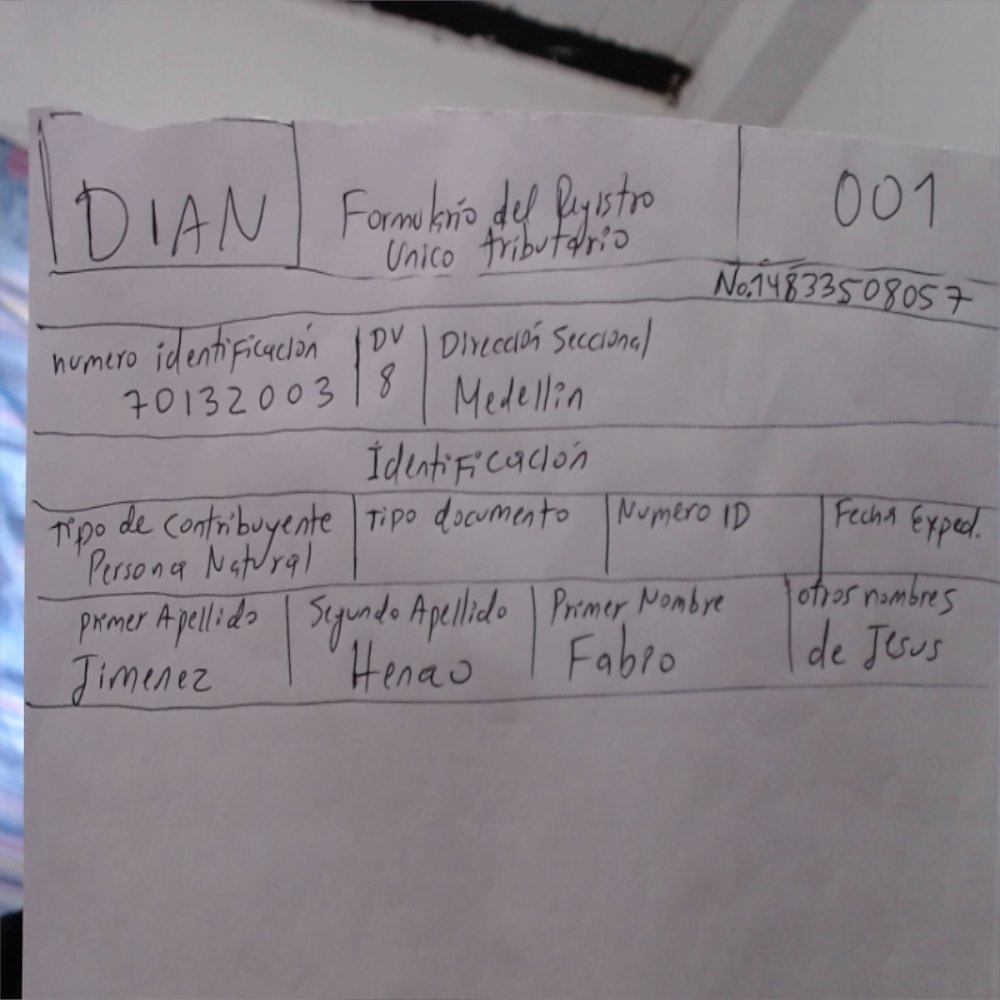 DIAN
Formulario del Registro
Unico tributario
001
No.14833508057
numero identificación
70132003
DV
8
Dirección Seccional
Medellin
Identificación
Tipo de Contribuyente
Persona Natural
Tipo documento
Numero ID
Fecha Exped.
primer Apellido
Jimenez
Segundo Apellido
Henao
Primer Nombre
Fabio
otros nombres
de Jesus